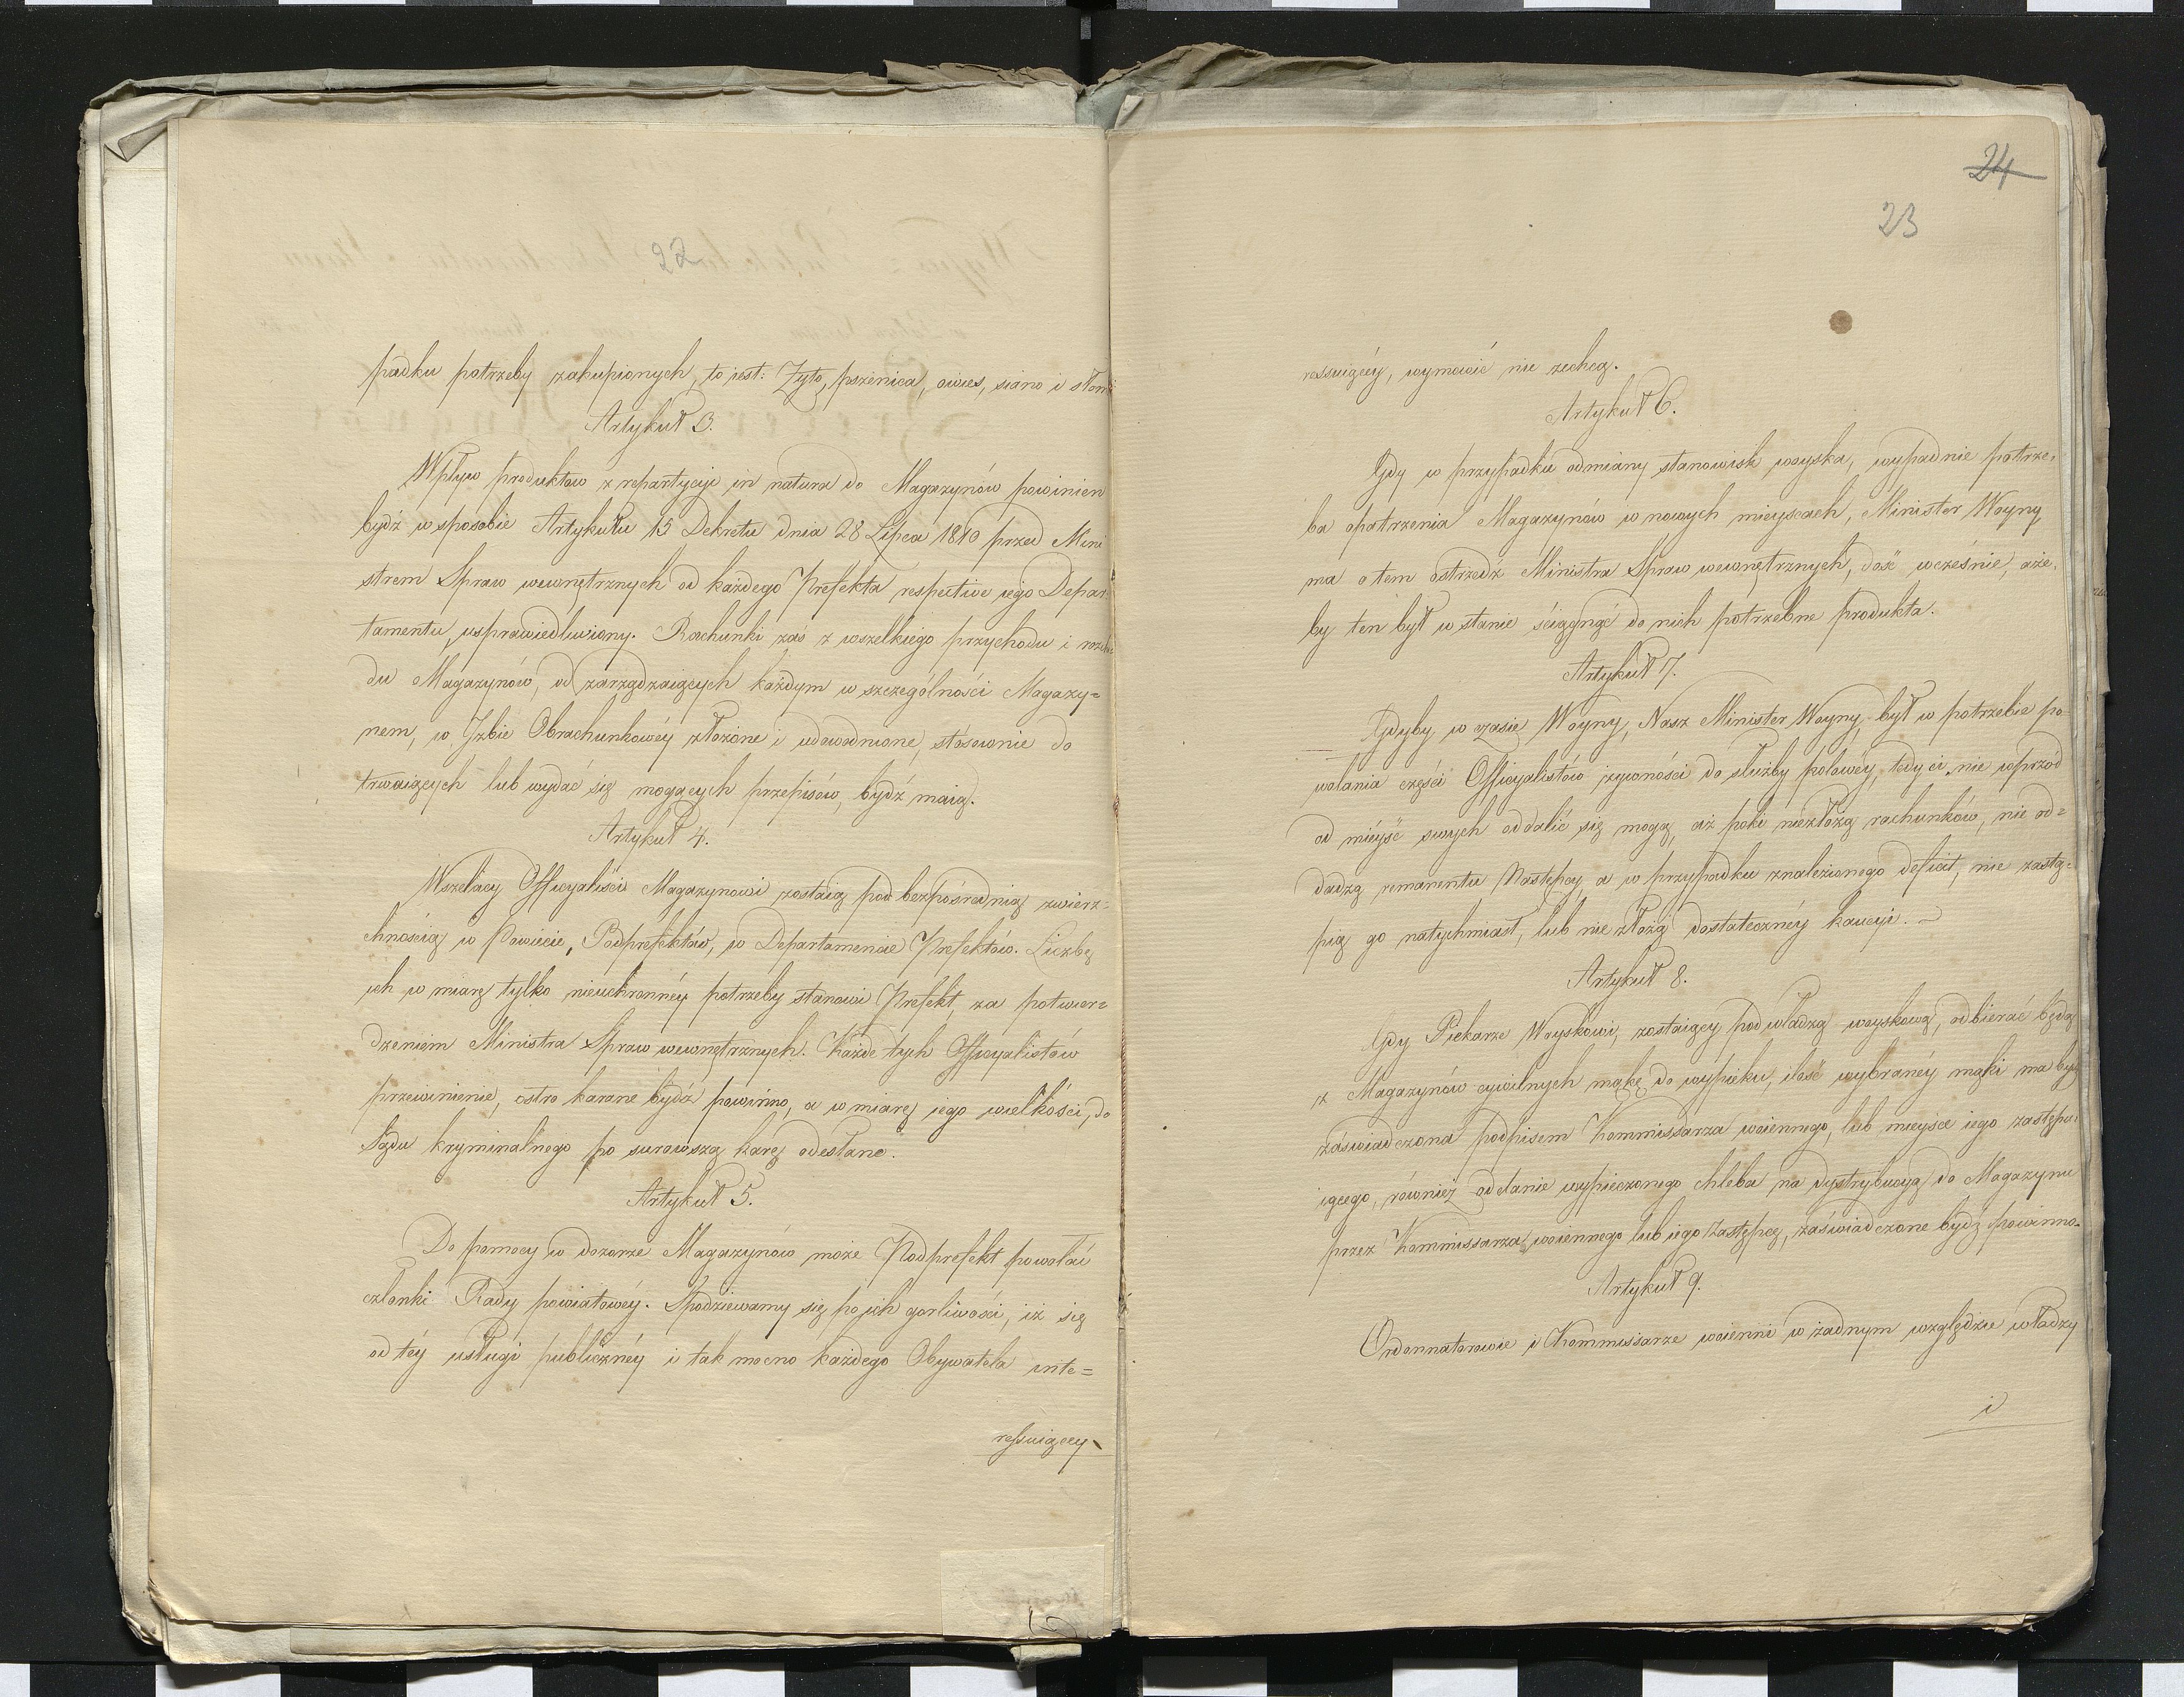 22
padku potrzeby zakupionych, to iest: Żyto, pszenica, owies, siano i słoma
Artykuł 3.
Wpływ produktow z repartycyi in natura do Magazynów powinien
bydź w sposobie Artykułu 15 Dekretu dnia 28 Lipca 1810 przed Mini
strem Spraw wewnętrznych od każdego Prefekta respective iego Depar-
tamentu, usprawiedliwiony. Rachunki zaś z wszelkiego przychodu i rozcho-
du Magazynów, od zarządzaiących każdym w szczególności Magazy=
nem, w Izbie Obrachunkowéy złożone i udowodnione, stósownie do
trwaiących lub wydać się mogących przepisów, bydź maią.
Artykuł 4.
Wszelacy Officyaliści Magazynowi zostaią pod bezpośrednią zwierz=
chnością w Powiecie, Podprefektów, w Departamencie Prefektów. Liczbę
ich w miarę tylko nieuchronnéy potrzeby stanowi Prefekt, za potwier=
dzeniem Ministra Spraw wewnętrznych. Każde tych Officyalistów
przewinienie, ostro karane bydź powinno, a w miarę iego wielkości, do
Sądu kryminalnego po surowszą karę odesłane.
Artykuł 5.
Do pomocy w dozorze Magazynów może Podprefekt powołać
członki Rady powiatowéy. Spodziewamy się po ich gorliwości, iż się
od téy usługi publicznéy i tak mocno każdego Obywatela inte=
ressuiącéy
24
23
ressuiącéy, wymówić nie zechcą.
Artykuł 6.
Gdy w przypadku odmiany stanowisk woyska, wypadnie potrze-
ba opatrzenia Magazynów w nowych mieyscach, Minister Woyny
ma o tem ostrzedz Ministra Spraw wewnętrznych, dość wcześnie, aże-
by ten był w stanie ściągnąć do nich potrzebne produkta.
Artykuł 7.
Gdyby w czasie Woyny, Nasz Minister Woyny, był w potrzebie po-
wołania części Officyalistów żywności do służby polowéy, tedy ci nie wprzód
od mieysc swych oddalić się mogą, aż poki niezłożą rachunków, nie od=
dadzą remanentu Następcy, a w przypadku znalezionego deficit, nie zastą=
pią go natychmiast, lub nie złożą dostatecznéy kaucyi.
Artykuł 8.
Gdy Piekarze Woyskowi, zostaiący pod władzą woyskową, odbierać będą
z Magazynów cywilnych mąkę do wypieku, ilość wybranéy mąki ma bydź
zaświadczona podpisem Kommissarza woiennego, lub mieysce iego zastępu-
iącego, również oddanie wypieczonego chleba na dystrybucyą do Magazynu
przez Kommissarza woiennego lub iego Zastępcę, zaświadczone bydź powinno.
Artykuł 9.
Ordonnatorowie i Kommissarze woienni w żadnym względzie władzy
i